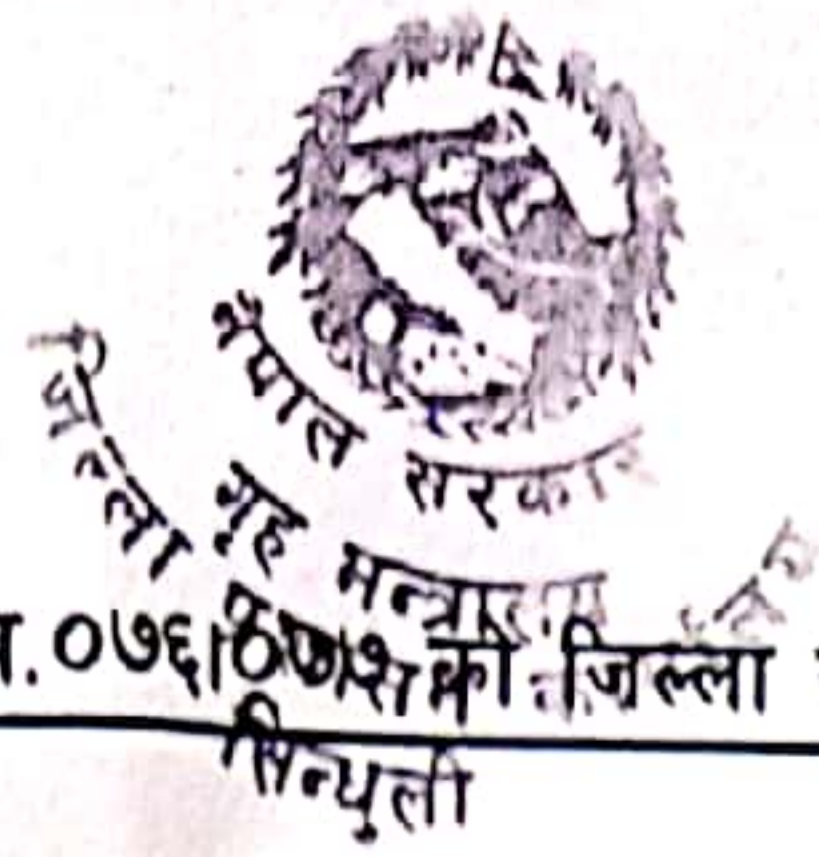 नेपाल सरकार
गृह मन्त्रालय
जिल्ला
.०७६।०७७ को जिल्ला
सिन्धुली